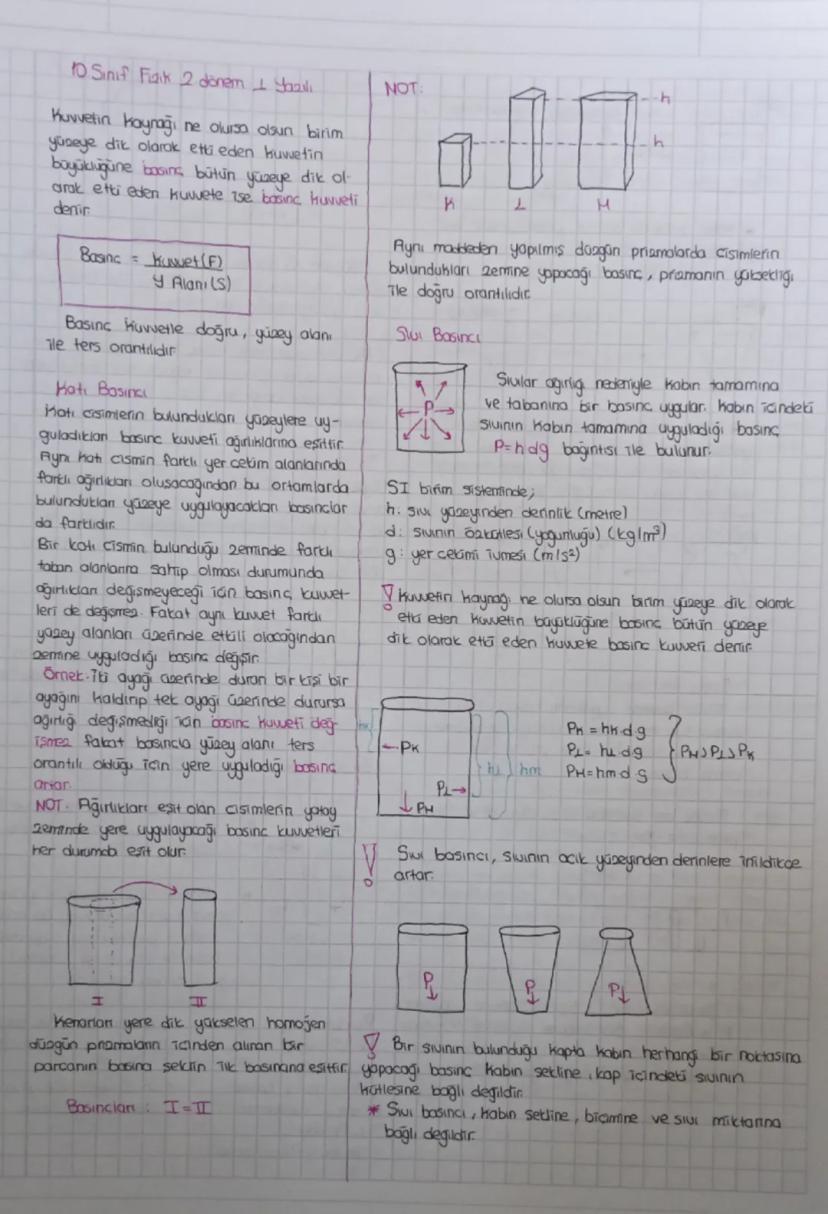 10 Sınıf Fizik 2 dönem 1 Yazılı
Kuvvetin kaynağı ne olursa olsun birim
yüzeye dik olarak etki eden kuvvetin
büyüklüğüne basınç bütün yüzeye dik ol-
arak etki eden kuvvete ise basınç kuvveti
denir.
Basınç = Kuvvet(F)
Y Alanı(S)
Basınç kuvvetle doğru, yüzey alanı
ile ters orantılıdır
Katı Basıncı
Katı cisimlerin bulundukları yüzeylere uy-
guladıkları basınç kuvveti ağırlıklarına eşittir.
Aynı katı cismin farklı yer çekim alanlarında
farklı ağırlıkları oluşacağından bu ortamlarda
bulundukları yüzeye uygulayacakları basınçlar
da farklıdır.
Bir katı cismin bulunduğu zeminde farklı
taban alanlarına sahip olması durumunda
ağırlıkları değişmeyeceği için basınç kuvvet-
leri de değişmez. Fakat aynı kuvvet farklı
yüzey alanları üzerinde etkili olacağından
zemine uyguladığı basınç değişir.
Örnek: İki ayağı üzerinde duran bir kişi bir
ayağını kaldırıp tek ayağı üzerinde durursa
ağırlığı değişmediği için basınç kuvveti değ-
işmez fakat basıncla yüzey alanı ters
orantılı olduğu için yere uyguladığı basınç
artar.
NOT: Ağırlıkları eşit olan cisimlerin yatay
zeminde yere uygulayacağı basınç kuvvetleri
her durumda eşit olur.
I II
Kenarları yere dik yükselen homojen
düzgün prizmaların içinden alınan bir
parçanın basıncı şeklin ilk basıncına eşittir.
Basınçları : I=II
NOT:
h
h
K L M
Aynı maddeden yapılmış düzgün prizmalarda cisimlerin
bulundukları zemine yapacağı basınç, prizmanın yüksekliği
ile doğru orantılıdır.
Sıvı Basıncı
P
Sıvılar ağırlığı nedeniyle kabın tamamına
ve tabanına bir basınç uygular. Kabın içindeki
sıvının kabın tamamına uyguladığı basınç
P=hdg bağıntısı ile bulunur.
SI birim sisteminde;
h: sıvı yüzeyinden derinlik (metre)
d: sıvının özkütlesi (yoğunluğu) (kg/m³)
g: yer çekimi ivmesi (m/s²)
! Kuvvetin kaynağı ne olursa olsun birim yüzeye dik olarak
etki eden kuvvetin büyüklüğüne basınç bütün yüzeye
dik olarak etki eden kuvvete basınç kuvveti denir.
hk PK hL hm
PL
PM
PK = hk d g
PL = hL d g
PM = hm d g
PM>PL>PK
! Sıvı basıncı, sıvının açık yüzeyinden derinlere inildikçe
artar.
P P P
! Bir sıvının bulunduğu kapta kabın herhangi bir noktasına
yapacağı basınç kabın şekline, kap içindeki sıvının
kütlesine bağlı değildir.
* Sıvı basıncı, kabın şekline, biçimine ve sıvı miktarına
bağlı değildir.